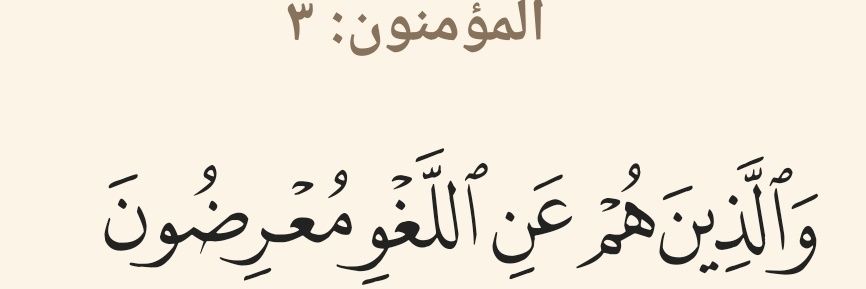 المؤمنون: ٣
وَٱلَّذِينَ هُمْ عَنِ ٱللَّغْوِ مُعْرِضُونَ